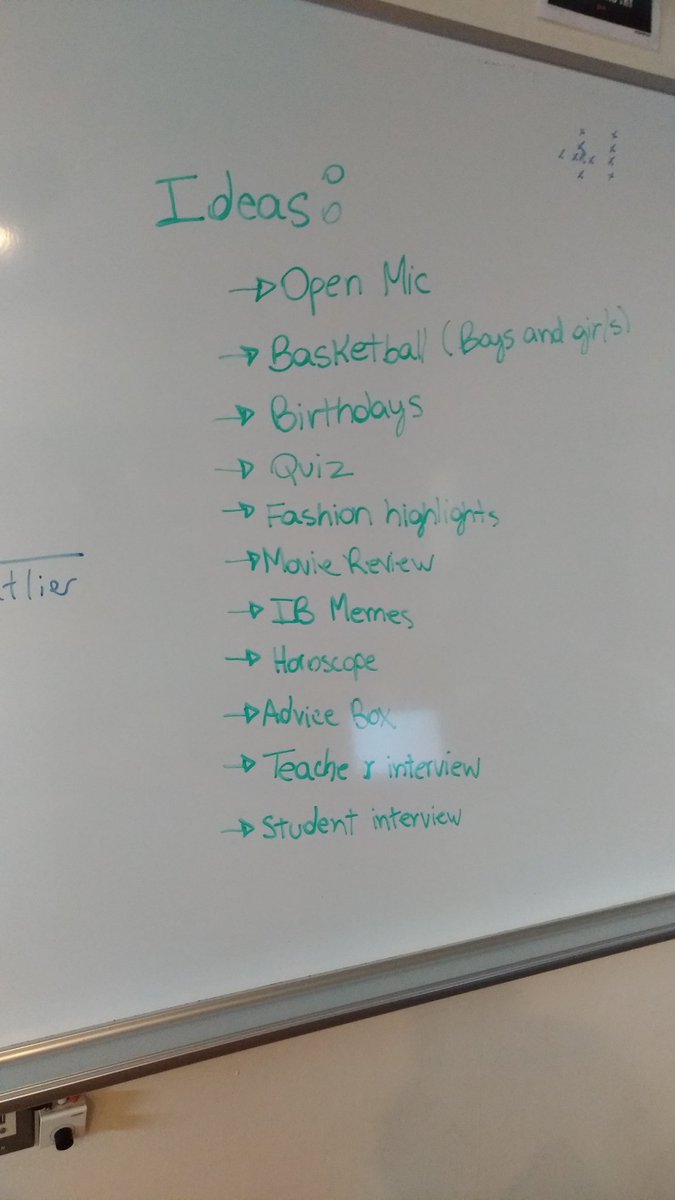 Ideas:
→ Open Mic
→ Basketball (Boys and girls)
→ Birthdays
→ Quiz
→ Fashion highlights
→ Movie Review
→ IB Memes
→ Horoscope
→ Advice Box
→ Teacher interview
→ Student interview
tlier